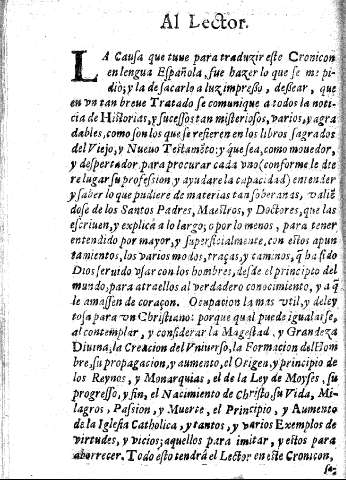 Al Lector.
LA Causa que tuue para traduzir este Cronicon
en lengua Española, fue hazer lo que se me pi-
diò; y la de sacarlo a luz impresso, dessear, que
en vn tan breue Tratado se comunique a todos la noti-
cia de Historias, y sucessos tan misteriosos, varios, y agra
dables, como son los que se refieren en los libros sagrados
del Viejo, y Nueuo Testamẽto: y que sea, como mouedor,
y despertador para procurar cada vno (conforme le die
re lugar su profession y ayudare la capacidad) entender
y saber lo que pudiere de materias tan soberanas, valiẽ
dose de los Santos Padres, Maestros, y Doctores, que las
escriuen, y explicã a lo largo; o por lo menos, para tener
entendido por mayor, y superficialmente, con estos apun
tamientos, los varios modos, traças, y caminos, q̃ ha sido
Dios seruido vsar con los hombres, desde el principio del
mundo, para atraellos al verdadero conocimiento, y a q̃
le amassen de coraçon. Ocupacion la mas vtil, y deley
tosa para vn Christiano: porque qual puede igualarse,
al contemplar, y considerar la Magestad, y Grandeza
Diuina, la Creacion del Vniuerso, la Formacion del Hom
bre, su propagacion, y aumento, el Origen, y principio de
los Reynos, y Monarquias, el de la Ley de Moyses, su
progresso, y fin, el Nacimiento de Christo, su Vida, Mi-
lagros, Passion, y Muerte, el Principio, y Aumento
de la Iglesia Catholica, y tantos, y varios Exemplos de
virtudes, y vicios; aquellos para imitar, y estos para
aborrecer. Todo esto tendrá el Lector en este Cronicon,